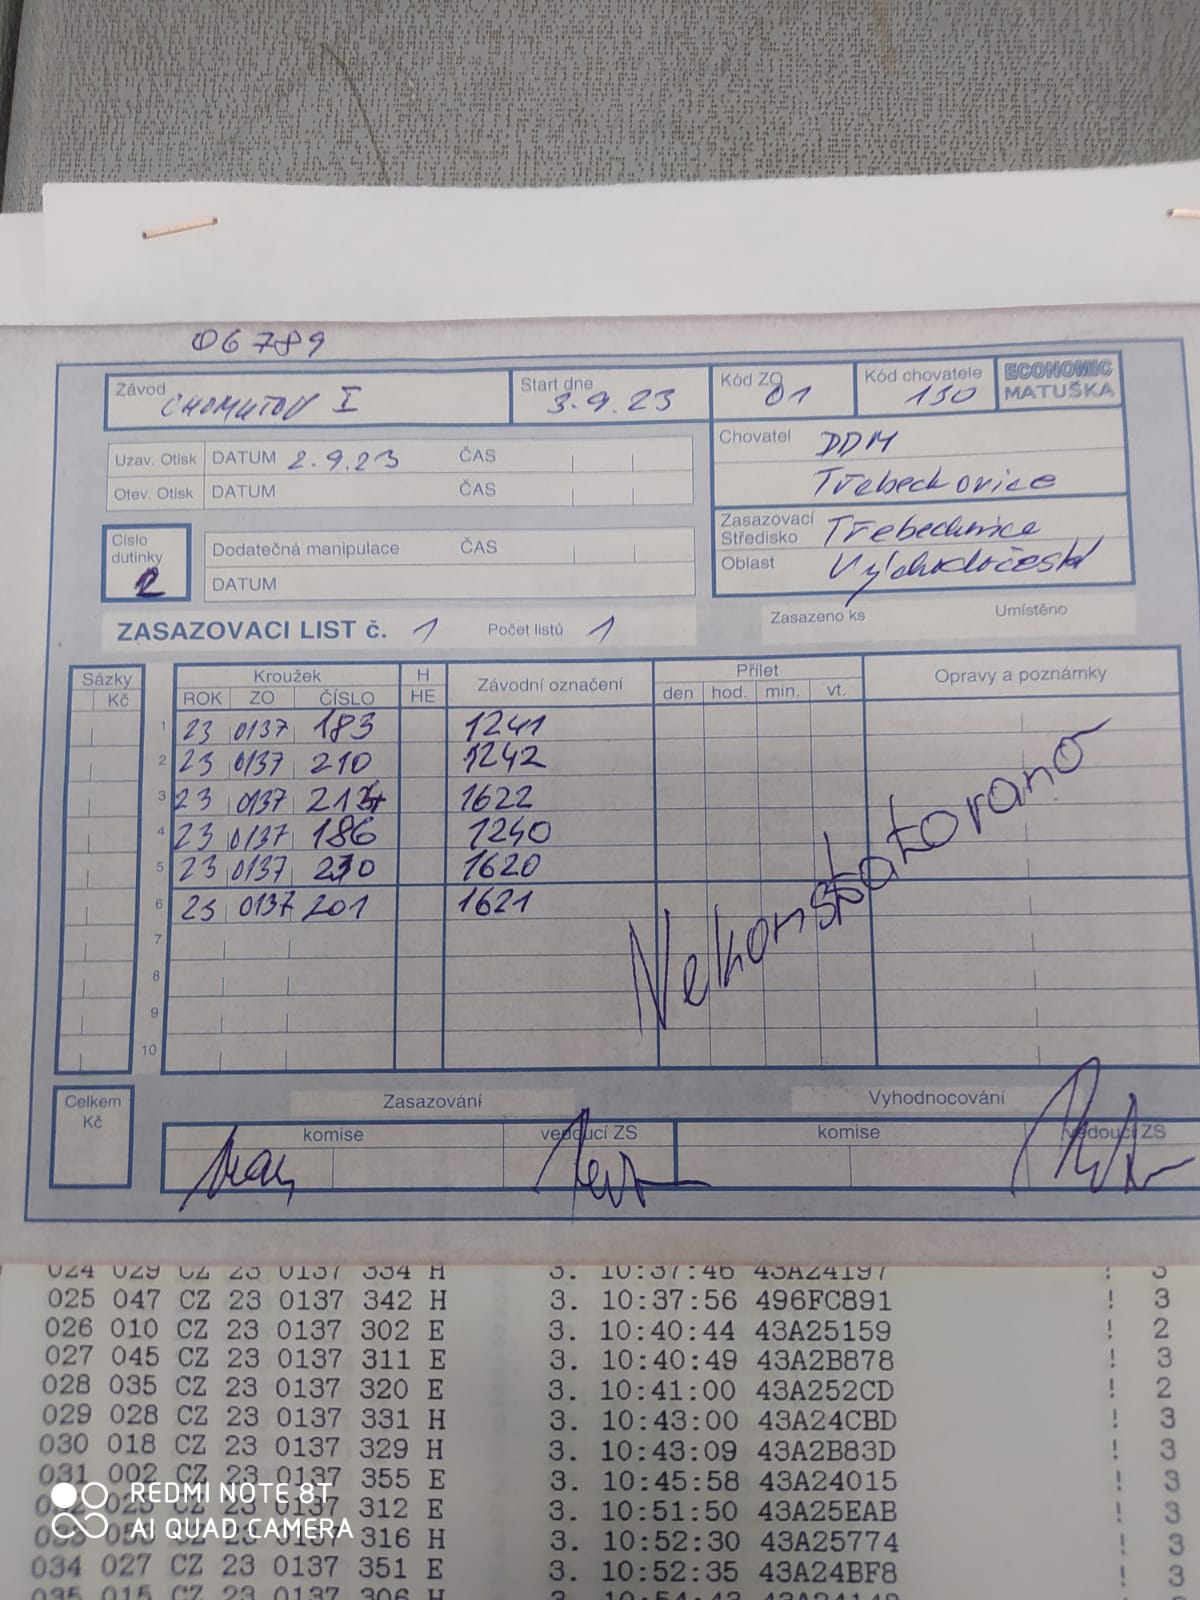 06789
Závod CHOMUTOV I Start dne 3.9.23 Kód ZO 01 Kód chovatele 130 ECONOMIC MATUŠKA
Chovatel DDM
Uzav. Otisk DATUM 2.9.23 ČAS
Třebechovice
Otev. Otisk DATUM ČAS
Zasazovací Středisko Třebechovice
Číslo dutinky 2
Dodatečná manipulace ČAS
Oblast Východočeská
DATUM
Zasazeno ks Umístěno
ZASAZOVACI LIST č. 1 Počet listů 1
Sázky Kroužek H Závodní označení Přílet Opravy a poznámky
Kč ROK ZO ČÍSLO HE den hod. min. vt.
1 23 0137 183 1241
2 23 0137 210 1242
3 23 0137 1622
4 23 0137 186 1240
5 23 0137 230 1620
6 23 0137 201 1621
7
8
9
10
Nekonstatorano
Celkem Kč
Zasazování Vyhodnocování
komise vedoucí ZS komise vedoucí ZS
024 029 CZ 23 0137 334 H 3. 10:37:46 43A24197 ! 3
025 047 CZ 23 0137 342 H 3. 10:37:56 496FC891 ! 3
026 010 CZ 23 0137 302 E 3. 10:40:44 43A25159 ! 2
027 045 CZ 23 0137 311 E 3. 10:40:49 43A2B878 ! 3
028 035 CZ 23 0137 320 E 3. 10:41:00 43A252CD ! 2
029 028 CZ 23 0137 331 H 3. 10:43:00 43A24CBD ! 3
030 018 CZ 23 0137 329 H 3. 10:43:09 43A2B83D ! 3
031 002 CZ 23 0137 355 E 3. 10:45:58 43A24015 ! 3
CZ 23 0137 312 E 3. 10:51:50 43A25EAB ! 3
0137 316 H 3. 10:52:30 43A25774 ! 3
034 027 CZ 23 0137 351 E 3. 10:52:35 43A24BF8 ! 3
035 015 CZ 23 0137 306 H ! 3
REDMI NOTE 8T
AI QUAD CAMERA